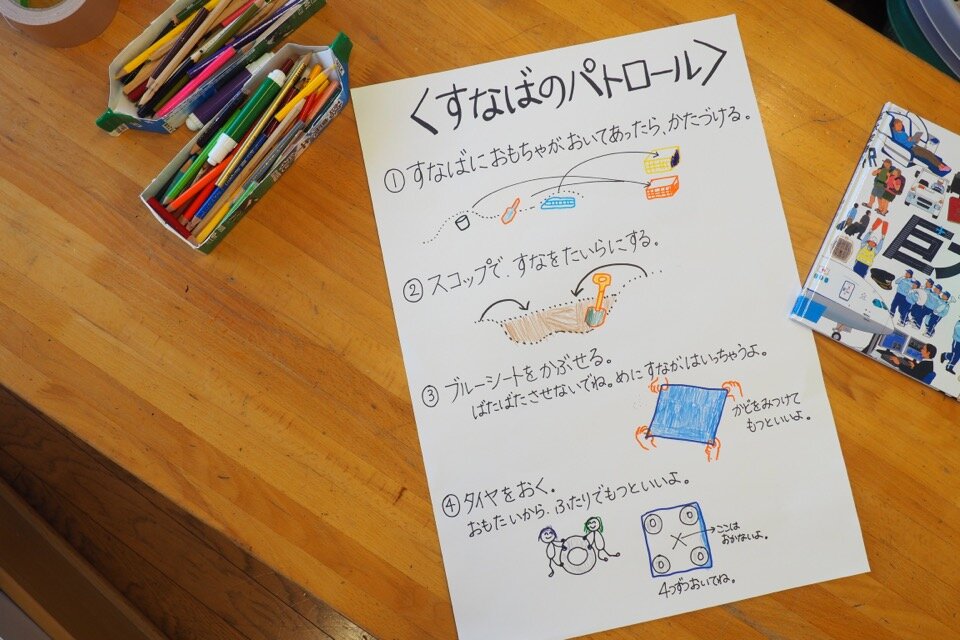 〈すなばのパトロール〉
①すなばにおもちゃがおいてあったら、かたづける。
②スコップで、すなをたいらにする。
③ブルーシートをかぶせる。
ばたばたさせないでね。めにすながはいっちゃうよ。
かどをみつけて
もつといいよ。
④タイヤをおく。
おもたいから、ふたりでもつといいよ。
ここは
おかないよ。
4つずつおいてね。